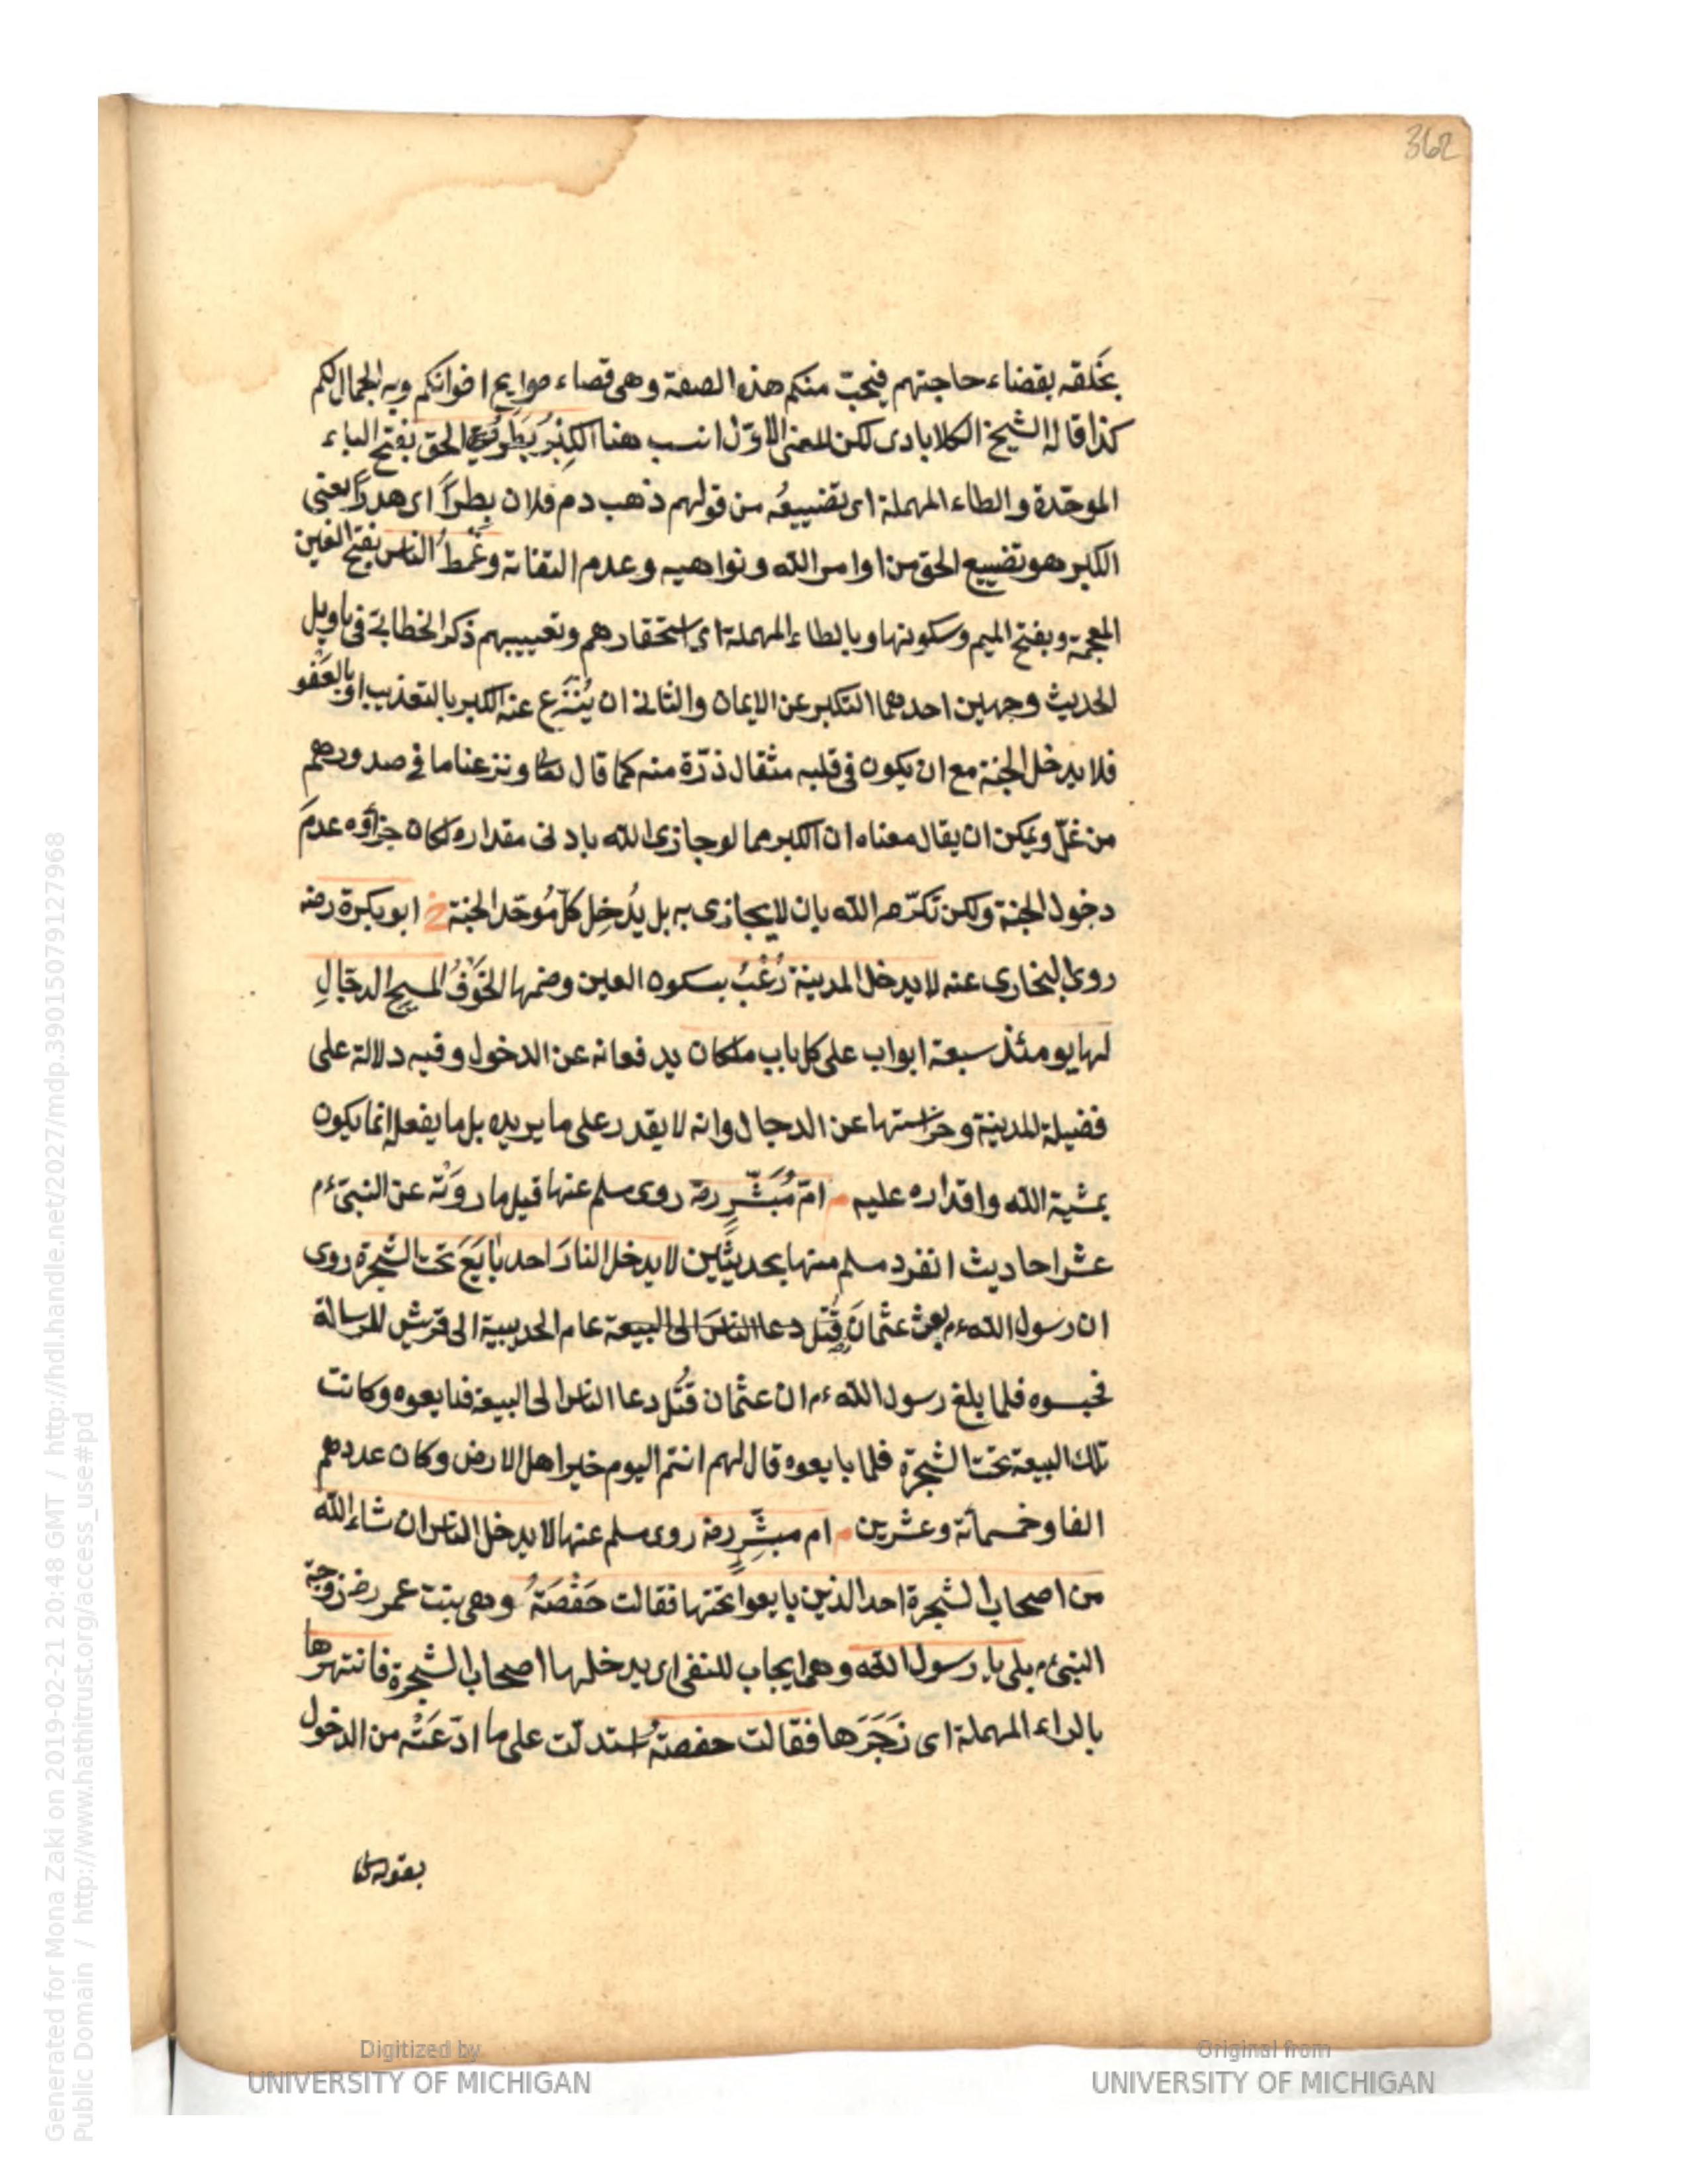 362
بخلقه بقضاء حاجتهم فيحبّ منكم هذه الصفة وهى قضاء حوايج اخوانكم وبه الجمال لكم
كذا قاله الشيخ الكلابادى لكن المعنى الاوّل انسب هنا الكِبْرُ بَطَرُ الحق بفتح الباء
الموحّدة والطاء المهملة اى تضييعُه من قولهم ذهب دم فلان بطراً اى هدراً يعنى
الكبر هو تضييع الحق من اوامر الله ونواهيه وعدم التفاته وغَمْطُ الناس بفتح الغين
المعجمة وبفتح الميم وسكونها وبالطاء المهملة اى استحقارهم وتعييبهم ذكر الخطابى فى تاويل
الحديث وجهين احدهما التكبر عن الايمان والثانى ان يُنْزَع عنه الكبر بالتعذيب او بالعَفْو
فلا يدخل الجنة مع ان يكون فى قلبه مثقال ذرّة منه كما قال تعا ونزعنا ما فى صدورهم
من غلّ ويمكن ان يقال معناه ان الكبر مما لو جازى الله بادنى مقداره لكان جزاؤه عدمَ
دخول الجنة ولكن تكرّم الله بان لا يجازى به بل يُدْخِل كلّ مُوحّد الجنة خ ابو بكرة رضه
روى البخارى عنه لا يدخل المدينة رُعْبُ بسكون العين وضمها الخَوْفُ المسيحِ الدجّالِ
لها يومئذ سبعة ابواب على كل باب ملكان يدفعانه عن الدخول وفيه دلالة على
فضيلة المدينة وحراستها عن الدجال وانه لا يقدر على ما يريده بل ما يفعل انما يكون
بمشية الله واقداره عليه م امّ مُبَشِّرٍ رضه روى مسلم عنها قيل ما روَتْه عن النبىّ ءم
عشر احاديث انفرد مسلم منها بحديثين لا يدخل النارَ احد بَايَعَ تحت الشجرة روى
ان رسول الله ءم بعث عثمانَ قُتل دعا الناسَ الى البيعة عام الحديبية الى قريش للرسالة
فحبسوه فلما بلغ رسول الله ءم ان عثمان قُتل دعا الناس الى البيعة فبايعوه وكانت
تلك البيعة تحت الشجرة فلما بايعوه قال لهم انتم اليوم خير اهل الارض وكان عددهم
الفا وخمسمائة وعشرين م ام مبشِّرٍ رضه روى مسلم عنها لا يدخل النار ان شاء الله
من اصحاب الشجرة احد الذين بايعوا تحتها فقالت حَفْصَةُ وهى بنت عمر رضه زوجة
النبى ءم بلى يا رسول الله وهو ايجاب للنفى اى يدخلها اصحاب الشجرة فانتهرها
بالراء المهملة اى زَجَرَها فقالت حفصةُ استدلّت على ما ادّعَتْه من الدخول
بقوله تعا
Generated for Mona Zaki on 2019-02-21 20:48 GMT / http://hdl.handle.net/2027/mdp.39015079127968
Public Domain / http://www.hathitrust.org/access_use#pd
Digitized by
UNIVERSITY OF MICHIGAN
Original from
UNIVERSITY OF MICHIGAN